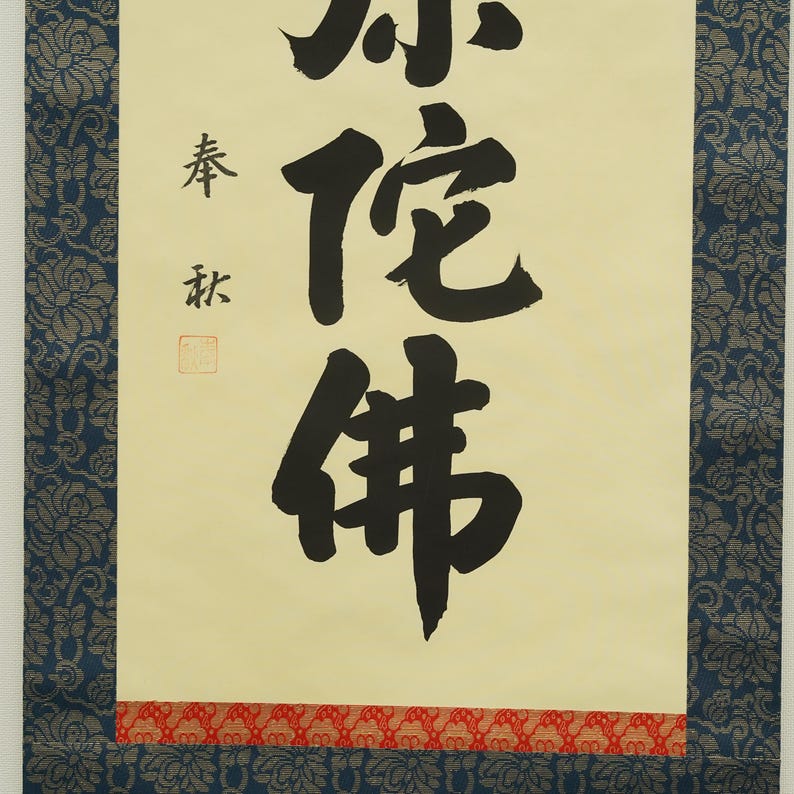 弥陀佛
奉秋